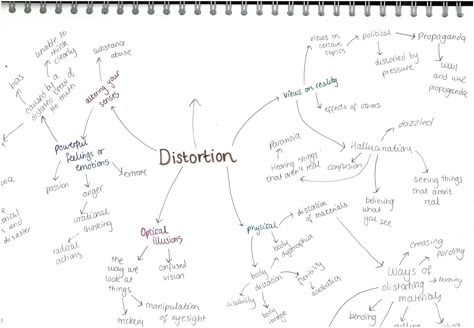 unable to
think
clearly
bias
caused by a
distorted view of
the truth
substance
abuse
altering your
senses
Powerful
feelings or
emotions
passion
anger
extreme
irrational
thinking
radical
actions
and
disaster
Distortion
views on
certain
topics
political
Propaganda
distorted by
pressure
WWI and WWII
propaganda
Views on reality
effects of others
Hallucinations
dazzled
Paranoia
Hearing things
that aren't real
confusion
believing
what
you see
seeing things
that aren't
real
Optical
illusions
the way
we look
at things
confused
vision
trickery
manipulation
of eyesight
Physical
distortion
of materials
body
dysmorphia
body
distortion
flexibility
disability
body
image
Ways of
distorting
materials
creasing
folding
bending